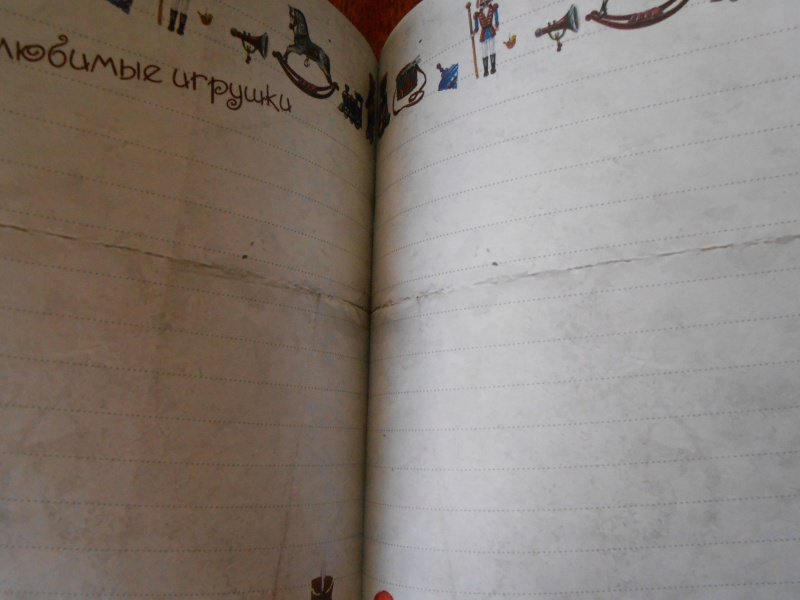 любимые игрушки